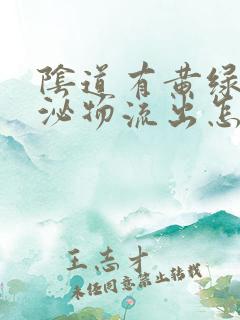 陰道有黄绿
泌物流出怎
王志才
未经同意禁止转载